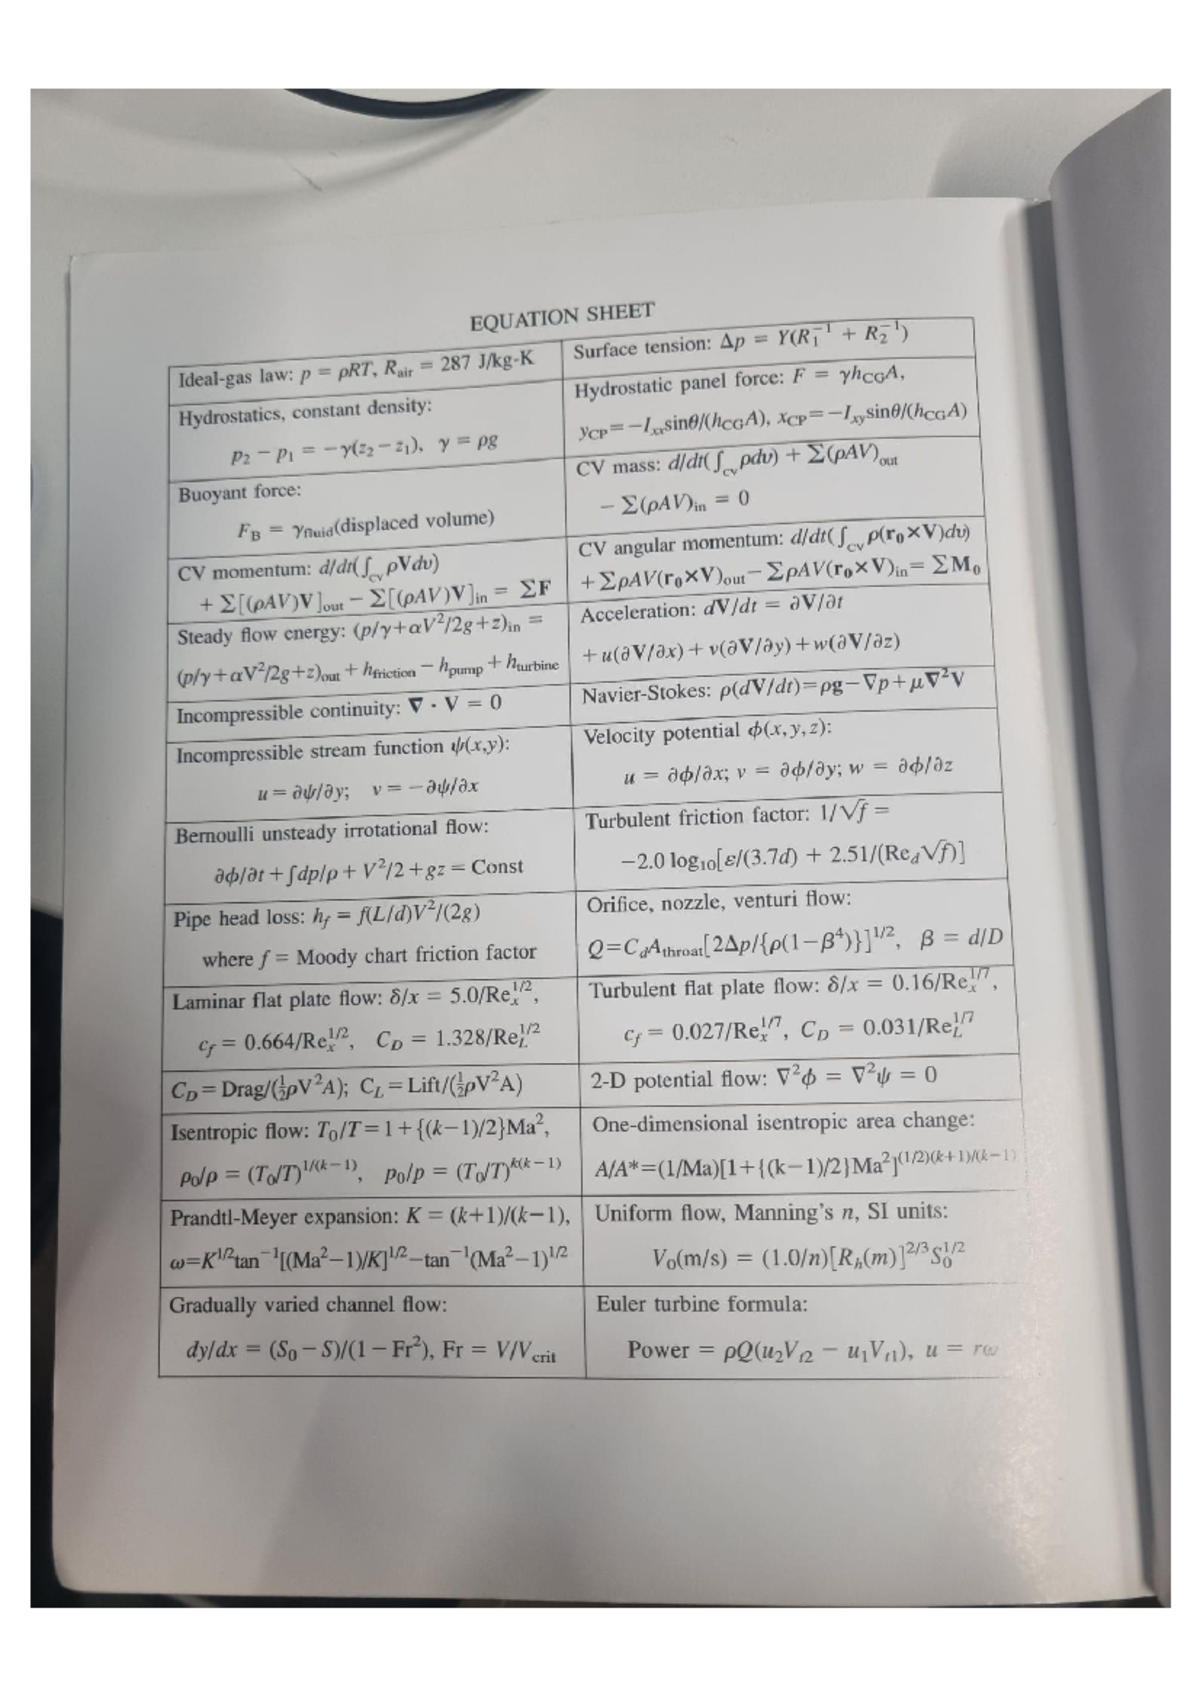 EQUATION SHEET
Ideal-gas law: p = ρRT, R_air = 287 J/kg-K
Surface tension: Δp = Y(R₁⁻¹ + R₂⁻¹)
Hydrostatics, constant density:
p₂ − p₁ = −γ(z₂ − z₁), γ = ρg
Hydrostatic panel force: F = γh_CG A,
y_CP = −I_xx sinθ/(h_CG A), x_CP = −I_xy sinθ/(h_CG A)
Buoyant force:
F_B = γ_fluid(displaced volume)
CV mass: d/dt(∫_cv ρdυ) + Σ(ρAV)_out
− Σ(ρAV)_in = 0
CV momentum: d/dt(∫_cv ρVdυ)
+ Σ[(ρAV)V]_out − Σ[(ρAV)V]_in = ΣF
CV angular momentum: d/dt(∫_cv ρ(r₀×V)dυ)
+ ΣρAV(r₀×V)_out − ΣρAV(r₀×V)_in = ΣM₀
Steady flow energy: (p/γ+αV²/2g+z)_in =
(p/γ+αV²/2g+z)_out + h_friction − h_pump + h_turbine
Acceleration: dV/dt = ∂V/∂t
+ u(∂V/∂x) + v(∂V/∂y) + w(∂V/∂z)
Incompressible continuity: ∇ · V = 0
Navier-Stokes: ρ(dV/dt)=ρg−∇p+μ∇²V
Incompressible stream function ψ(x,y):
u = ∂ψ/∂y; v = −∂ψ/∂x
Velocity potential ϕ(x, y, z):
u = ∂ϕ/∂x; v = ∂ϕ/∂y; w = ∂ϕ/∂z
Bernoulli unsteady irrotational flow:
∂ϕ/∂t + ∫dp/ρ + V²/2 + gz = Const
Turbulent friction factor: 1/√f =
−2.0 log₁₀[ε/(3.7d) + 2.51/(Re_d√f)]
Pipe head loss: h_f = f(L/d)V²/(2g)
where f = Moody chart friction factor
Orifice, nozzle, venturi flow:
Q=C_d A_throat[2Δp/{ρ(1−β⁴)}]^1/2, β = d/D
Laminar flat plate flow: δ/x = 5.0/Re_x^1/2,
c_f = 0.664/Re_x^1/2, C_D = 1.328/Re_L^1/2
Turbulent flat plate flow: δ/x = 0.16/Re_x^1/7,
c_f = 0.027/Re_x^1/7, C_D = 0.031/Re_L^1/7
C_D = Drag/(½ρV²A); C_L = Lift/(½ρV²A)
2-D potential flow: ∇²ϕ = ∇²ψ = 0
Isentropic flow: T₀/T=1+{(k−1)/2}Ma²,
ρ₀/ρ = (T₀/T)^1/(k−1), p₀/p = (T₀/T)^k/(k−1)
One-dimensional isentropic area change:
A/A*=(1/Ma)[1+{(k−1)/2}Ma²]^(1/2)(k+1)/(k−1)
Prandtl-Meyer expansion: K = (k+1)/(k−1),
ω=K^1/2 tan⁻¹[(Ma²−1)/K]^1/2−tan⁻¹(Ma²−1)^1/2
Uniform flow, Manning's n, SI units:
V₀(m/s) = (1.0/n)[R_h(m)]^2/3 S₀^1/2
Gradually varied channel flow:
dy/dx = (S₀ − S)/(1 − Fr²), Fr = V/V_crit
Euler turbine formula:
Power = ρQ(u₂V_t2 − u₁V_t1), u = rω